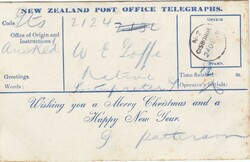 NEW ZEALAND POST OFFICE TELEGRAPHS.
Code 2124
Office of Origin and
Instructions
W E Goffe
Native
Greetings.
Words.
Time finished
Operator's Initials
Wishing you a Merry Christmas and a
Happy New Year.
G Patterson